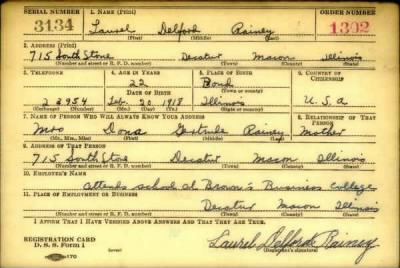 SERIAL NUMBER 1. NAME (Print) ORDER NUMBER
3134 Laurel Delford Rainey 1302
(First) (Middle) (Last)
2. ADDRESS (Print)
715 South Stone Decatur Macon Illinois
(Number and street or R. F. D. number) (Town) (County) (State)
3. TELEPHONE 4. AGE IN YEARS 5. PLACE OF BIRTH 6. COUNTRY OF CITIZENSHIP
22 Bond
DATE OF BIRTH (Town or county)
2-8954 Feb. 20 1918 Illinois U.S.A
(Exchange) (Number) (Mo.) (Day) (Yr.) (State or country)
7. NAME OF PERSON WHO WILL ALWAYS KNOW YOUR ADDRESS 8. RELATIONSHIP OF THAT PERSON
Mrs Dona Gertrude Rainey Mother
(Mr., Mrs., Miss) (First) (Middle) (Last)
9. ADDRESS OF THAT PERSON
715 South Stone Decatur Macon Illinois
(Number and street or R. F. D. number) (Town) (County) (State)
10. EMPLOYER'S NAME
Attends school at Brown's Business College
11. PLACE OF EMPLOYMENT OR BUSINESS
Decatur Macon Illinois
(Number and street or R. F. D. number) (Town) (County) (State)
I AFFIRM THAT I HAVE VERIFIED ABOVE ANSWERS AND THAT THEY ARE TRUE.
REGISTRATION CARD
D. S. S. Form 1 Laurel Delford Rainey
(Registrant's signature)